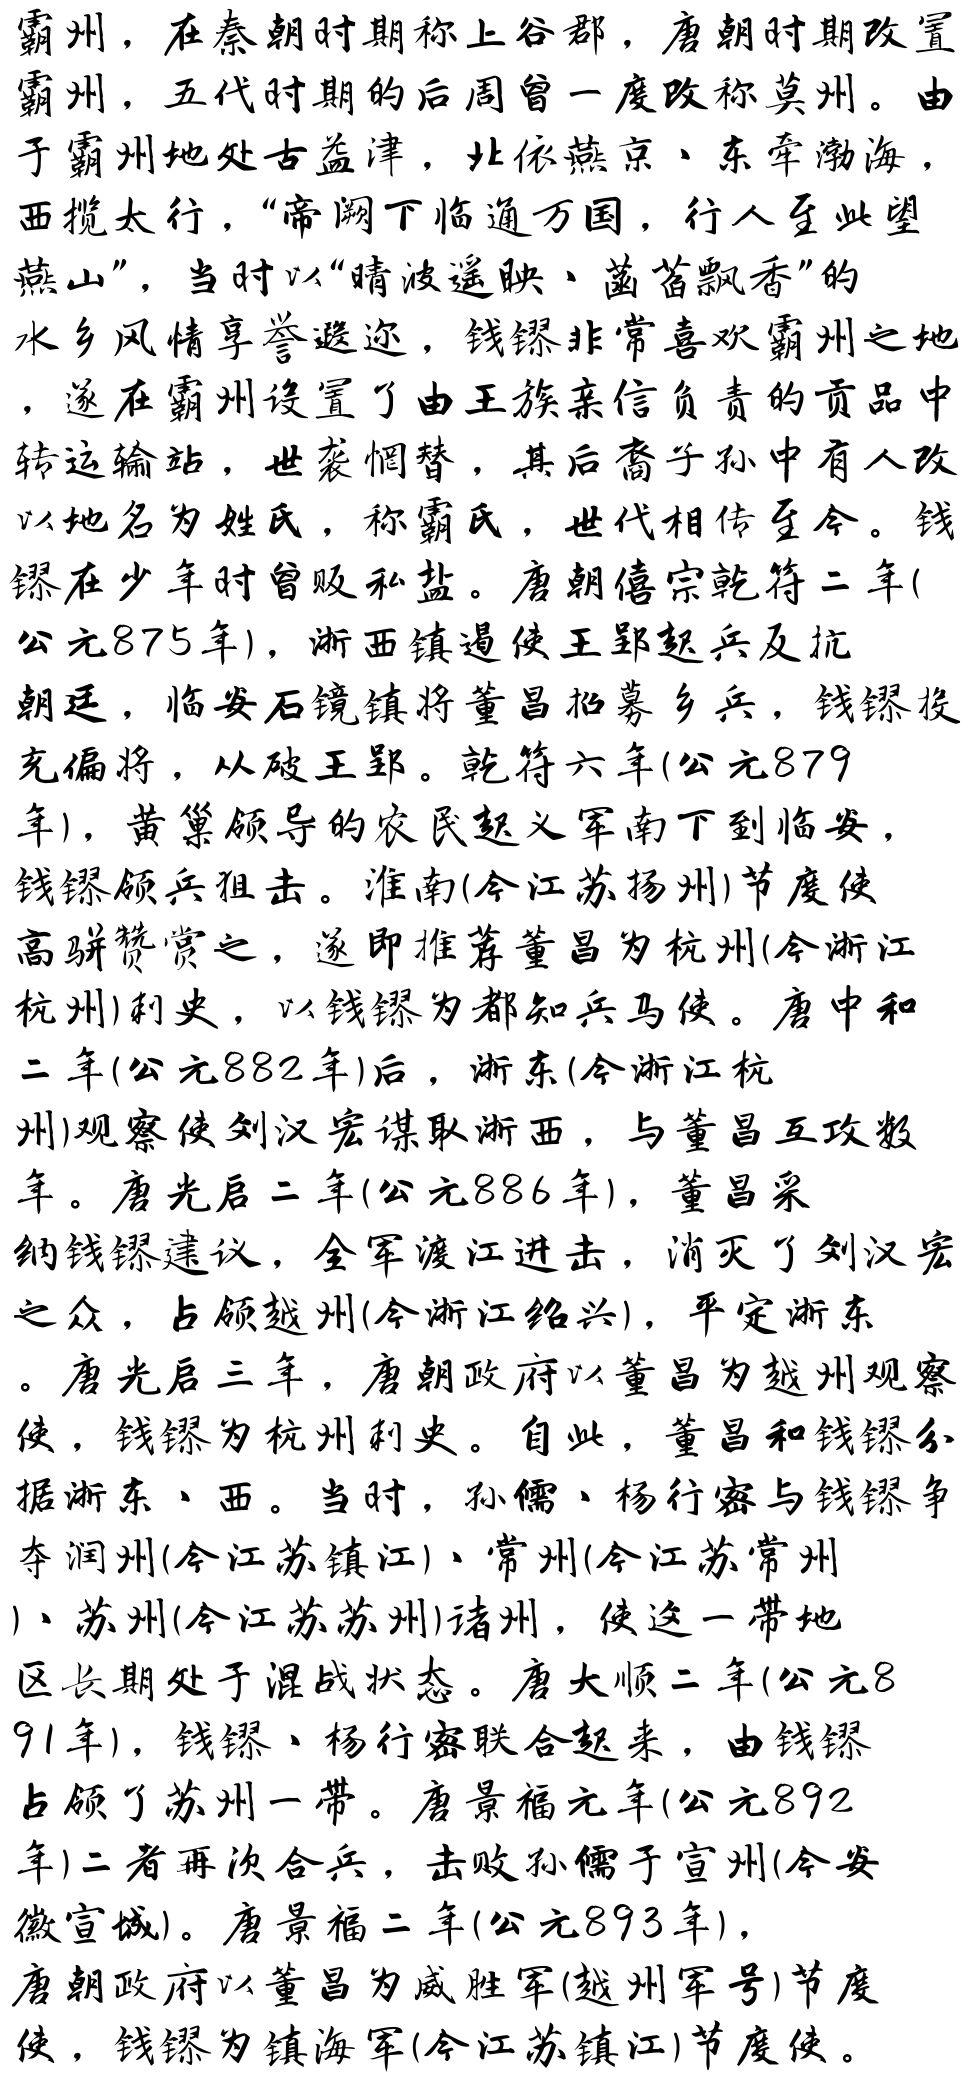 霸州，在秦朝时期称上谷郡，唐朝时期改置
霸州，五代时期的后周曾一度改称莫州。由
于霸州地处古益津，北依燕京、东牵渤海，
西揽太行，“帝阙下临通万国，行人至此望
燕山”，当时以“晴波遥映、菡萏飘香”的
水乡风情享誉遐迩，钱镠非常喜欢霸州之地
，遂在霸州设置了由王族亲信负责的贡品中
转运输站，世袭惘替，其后裔子孙中有人改
以地名为姓氏，称霸氏，世代相传至今。钱
镠在少年时曾贩私盐。唐朝僖宗乾符二年(
公元875年)，浙西镇遏使王郢起兵反抗
朝廷，临安石镜镇将董昌招募乡兵，钱镠投
充偏将，从破王郢。乾符六年(公元879
年)，黄巢领导的农民起义军南下到临安，
钱镠领兵狙击。淮南(今江苏扬州)节度使
高骈赞赏之，遂即推荐董昌为杭州(今浙江
杭州)刺史，以钱镠为都知兵马使。唐中和
二年(公元882年)后，浙东(今浙江杭
州)观察使刘汉宏谋取浙西，与董昌互攻数
年。唐光启二年(公元886年)，董昌采
纳钱镠建议，全军渡江进击，消灭了刘汉宏
之众，占领越州(今浙江绍兴)，平定浙东
。唐光启三年，唐朝政府以董昌为越州观察
使，钱镠为杭州刺史。自此，董昌和钱镠分
据浙东、西。当时，孙儒、杨行密与钱镠争
夺润州(今江苏镇江)、常州(今江苏常州
)、苏州(今江苏苏州)诸州，使这一带地
区长期处于混战状态。唐大顺二年(公元8
91年)，钱镠、杨行密联合起来，由钱镠
占领了苏州一带。唐景福元年(公元892
年)二者再次合兵，击败孙儒于宣州(今安
徽宣城)。唐景福二年(公元893年)，
唐朝政府以董昌为威胜军(越州军号)节度
使，钱镠为镇海军(今江苏镇江)节度使。